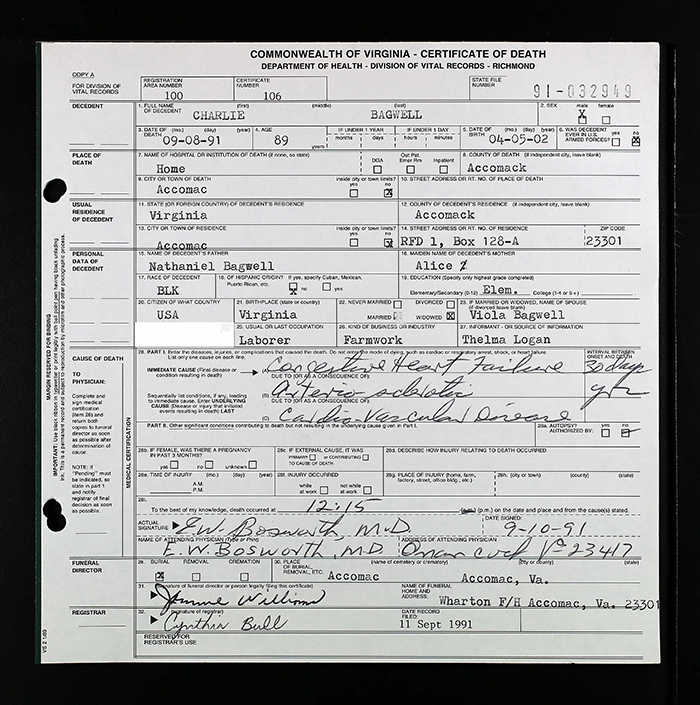 COMMONWEALTH OF VIRGINIA - CERTIFICATE OF DEATH
DEPARTMENT OF HEALTH - DIVISION OF VITAL RECORDS - RICHMOND
COPY A
FOR DIVISION OF VITAL RECORDS
REGISTRATION AREA NUMBER 100
CERTIFICATE NUMBER 106
STATE FILE NUMBER 91-032949
DECEDENT
1. FULL NAME OF DECEDENT (first) (middle) (last)
CHARLIE BAGWELL
2. SEX male female
X
3. DATE OF DEATH (mo.) (day) (year) 09-08-91
4. AGE 89 years
IF UNDER 1 YEAR months days
IF UNDER 1 DAY hours minutes
5. DATE OF BIRTH (mo.) (day) (year) 04-05-02
6. WAS DECEDENT EVER IN U.S. ARMED FORCES? yes no
X
PLACE OF DEATH
7. NAME OF HOSPITAL OR INSTITUTION OF DEATH (if none, so state)
Home
DOA Out Pat. Emer Rm Inpatient
8. COUNTY OF DEATH (if independent city, leave blank)
Accomack
9. CITY OR TOWN OF DEATH inside city or town limits? yes no
Accomac X
10. STREET ADDRESS OR RT. NO. OF PLACE OF DEATH
USUAL RESIDENCE OF DECEDENT
11. STATE (OR FOREIGN COUNTRY) OF DECEDENT'S RESIDENCE
Virginia
12. COUNTY OF DECEDENT'S RESIDENCE (if independent city, leave blank)
Accomack
13. CITY OR TOWN OF RESIDENCE inside city or town limits? yes no
Accomac X
14. STREET ADDRESS OR RT. NO. OF RESIDENCE ZIP CODE
RFD 1, Box 128-A 23301
PERSONAL DATA OF DECEDENT
15. NAME OF DECEDENT'S FATHER
Nathaniel Bagwell
16. MAIDEN NAME OF DECEDENT'S MOTHER
Alice
17. RACE OF DECEDENT
BLK
18. OF HISPANIC ORIGIN? If yes, specify Cuban, Mexican, Puerto Rican, etc.
no yes
X
19. EDUCATION (Specify only highest grade completed)
Elementary/Secondary (0-12) Elem. College (1-4 or 5+)
20. CITIZEN OF WHAT COUNTRY
USA
21. BIRTHPLACE (state or country)
Virginia
22. NEVER MARRIED DIVORCED
MARRIED WIDOWED X
23. IF MARRIED OR WIDOWED, NAME OF SPOUSE (if divorced leave blank)
Viola Bagwell
25. USUAL OR LAST OCCUPATION
Laborer
26. KIND OF BUSINESS OR INDUSTRY
Farmwork
27. INFORMANT - OR SOURCE OF INFORMATION
Thelma Logan
CAUSE OF DEATH
TO PHYSICIAN:
Complete and sign medical certification (item 28) and return both copies to funeral director as soon as possible after determination of cause.
NOTE: If "Pending" must be indicated, so state in part 1 and notify registrar of final decision as soon as possible.
MEDICAL CERTIFICATION
28. PART I. Enter the diseases, injuries, or complications that caused the death. Do not enter the mode of dying, such as cardiac or respiratory arrest, shock, or heart failure.
List only one cause on each line.
INTERVAL BETWEEN ONSET AND DEATH
IMMEDIATE CAUSE (Final disease or condition resulting in death)
Congestive Heart Failure 30 days
DUE TO (OR AS A CONSEQUENCE OF):
Sequentially list conditions, if any, leading to immediate cause. Enter UNDERLYING CAUSE (Disease or injury that initiated events resulting in death) LAST
(B) Arteriosclerotic yrs
DUE TO (OR AS A CONSEQUENCE OF):
(C) Cardio-Vascular Disease
PART II. Other significant conditions contributing to death but not resulting in the underlying cause given in Part I.
28a. AUTOPSY? AUTHORIZED BY: yes no
28b. IF FEMALE, WAS THERE A PREGNANCY IN PAST 3 MONTHS?
yes no unknown
28c. IF EXTERNAL CAUSE, IT WAS
PRIMARY or CONTRIBUTING TO CAUSE OF DEATH
28d. DESCRIBE HOW INJURY RELATING TO DEATH OCCURRED
28e. TIME OF INJURY (mo.) (day) (year)
A.M. P.M.
28f. INJURY OCCURRED
while at work not while at work
28g. PLACE OF INJURY (home, farm, factory, street, office bldg., etc.)
28h. (city or town) (county) (state)
28i. To the best of my knowledge, death occurred at 12:15 (p.m.) on the date and place and from the cause(s) stated.
ACTUAL SIGNATURE E.W. Bosworth, M.D.
DATE SIGNED: 9-10-91
NAME OF ATTENDING PHYSICIAN (Type or Print) ADDRESS OF ATTENDING PHYSICIAN
E.W. BOSWORTH, M.D. Onancock Va 23417
FUNERAL DIRECTOR
29. BURIAL REMOVAL CREMATION
X
30. PLACE OF BURIAL, REMOVAL, ETC. (name of cemetery or crematory) (city or county) (state)
Accomac Accomac, Va.
31. (signature of funeral director or person legally filing this certificate)
Williams
NAME OF FUNERAL HOME AND ADDRESS:
Wharton F/H Accomac, Va. 23301
REGISTRAR
32. (signature of registrar)
Cynthia Bull
DATE RECORD FILED:
11 Sept 1991
RESERVED FOR REGISTRAR'S USE
VS 2 1/89
MARGIN RESERVED FOR BINDING